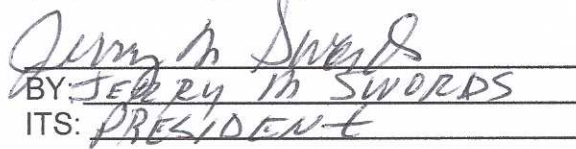 Jerry M Swords
BY: JERRY M SWORDS
ITS: PRESIDENT